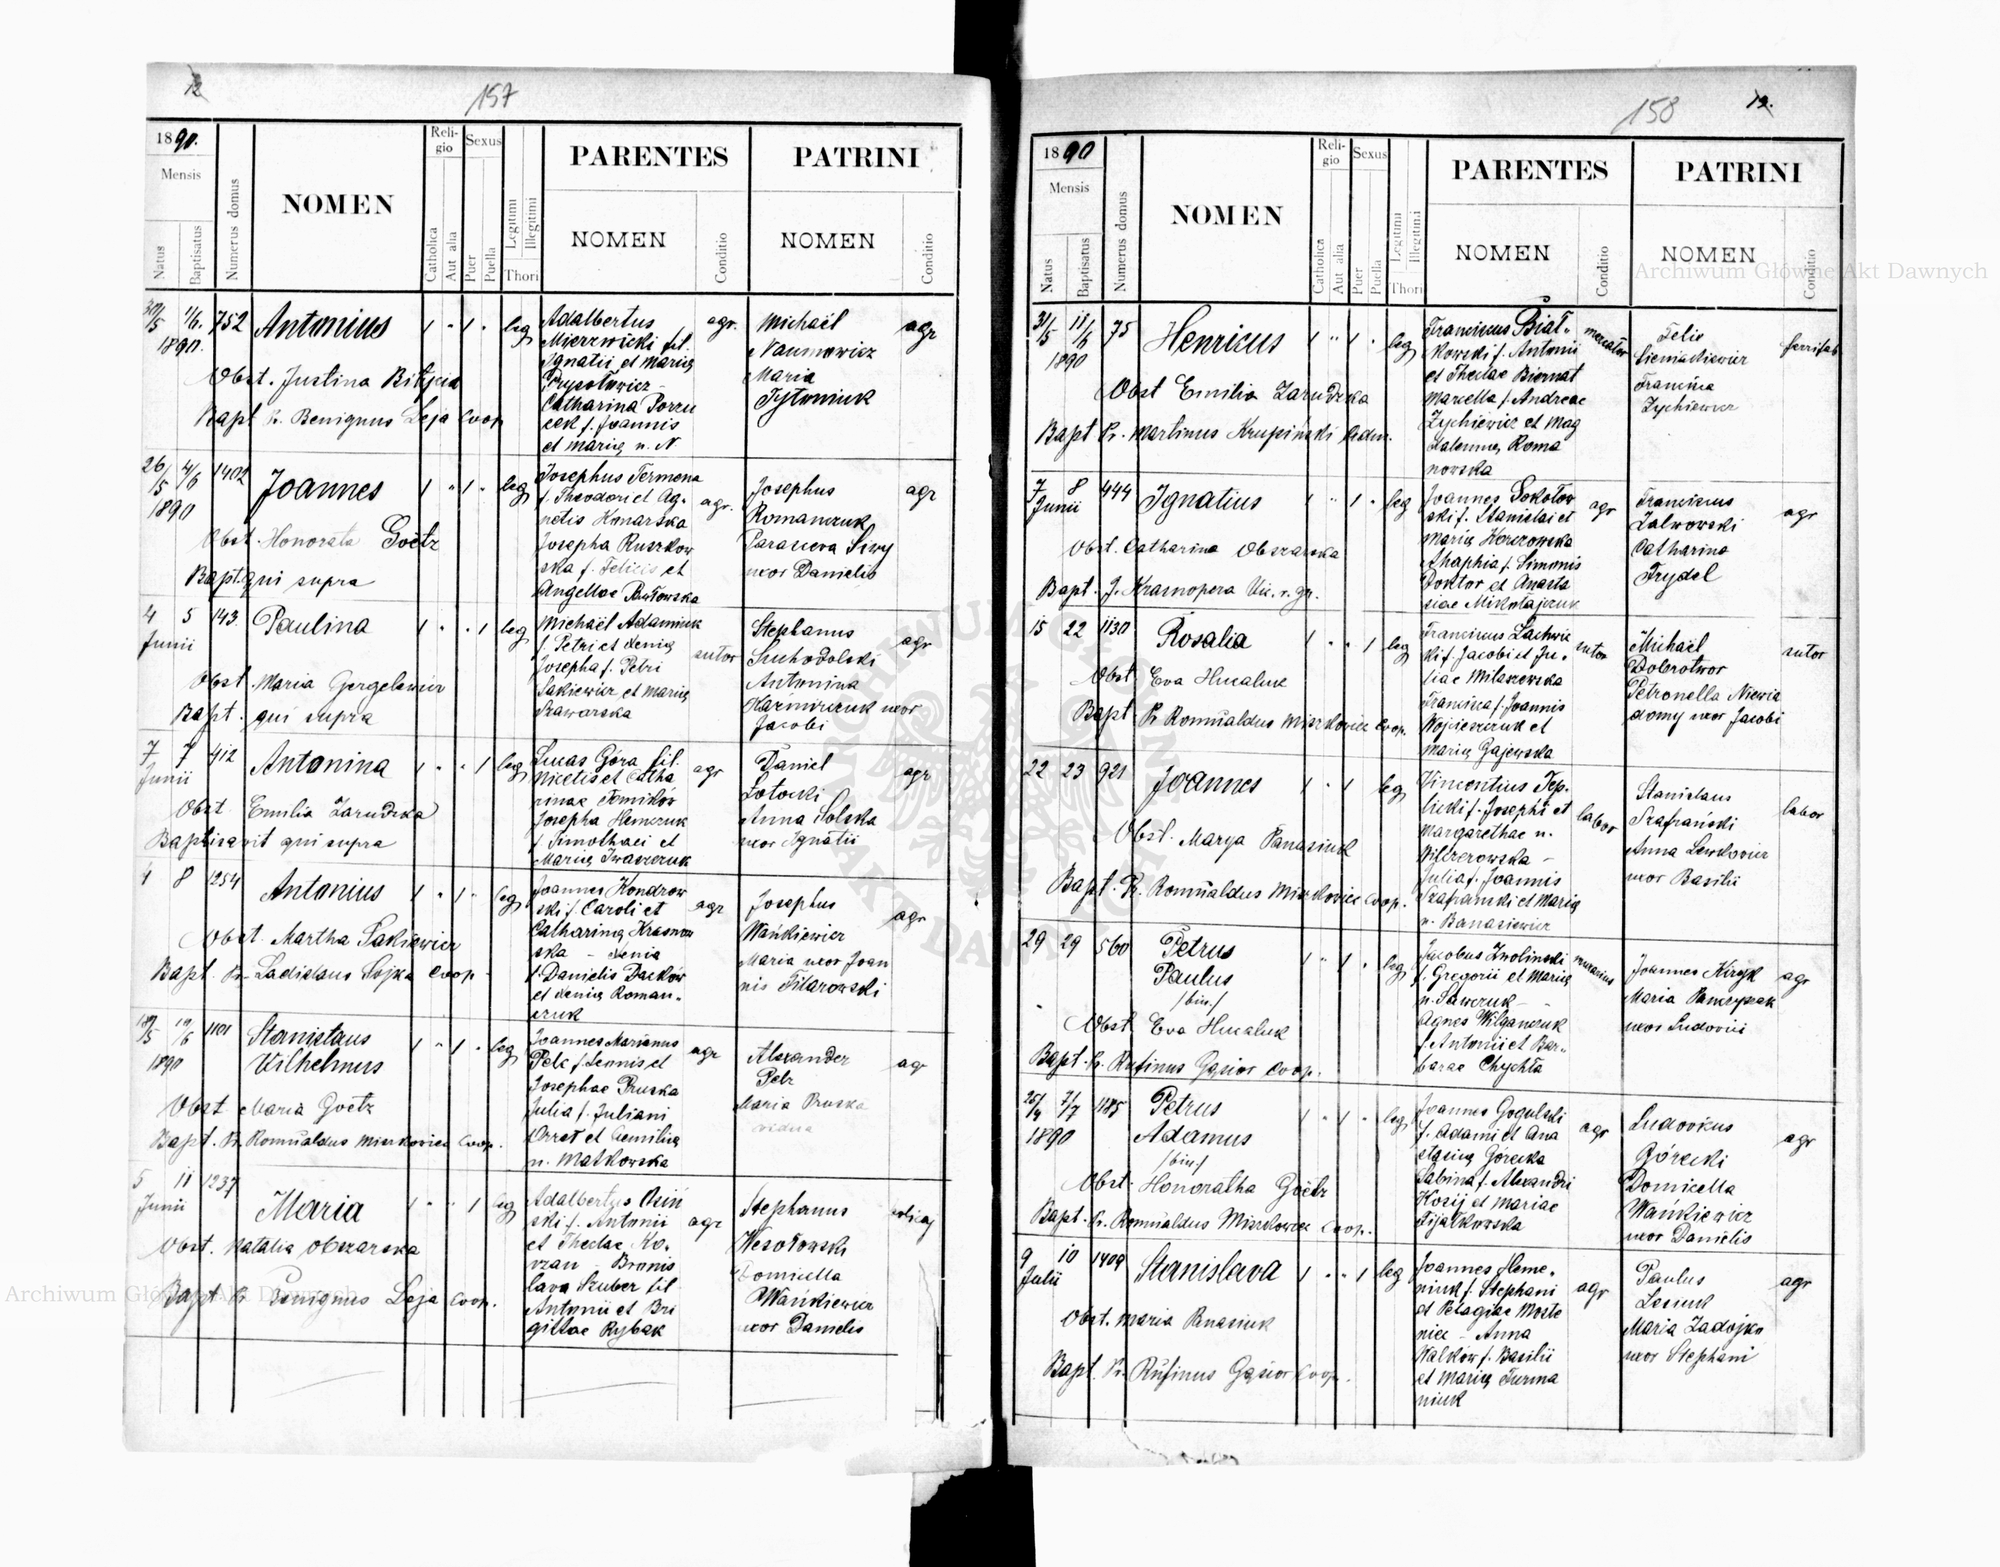 12
157
1890.
Mensis
Natus
Baptisatus
Numerus domus
NOMEN
Religio
Catholica
Aut alia
Sexus
Puer
Puella
Legitimi
Illegitimi
Thori
PARENTES
NOMEN
Conditio
PATRINI
NOMEN
Conditio
30/5 1/6. 752 Antonius 1 " 1 " leg
1890.
Obst. Justina
Bapt Pr. Benignus Leja Coop
Adalbertus agr.
Mierzwicki fil.
Ignatii et Marią
Catharina
f. Joannis
et Marią n. N
Michaël agr
Naumowicz
Maria
Tytoniuk
26/5 4/6 1402 Joannes 1 " 1 " leg
1890
Obst. Honorata Goetz
Bapt. qui supra
Josephus Termena
f. Theodori et Ag- agr.
netis Konarska
Josepha Ruszkow
ska f. Felicis et
Angellae Butowska
Josephus agr
Romanczuk
Parasceva Siwy
uxor Danielis
4 5 143. Paulina 1 " " 1 leg
Junii
Obst. Maria Gergelewicz
Bapt. qui supra
Michaël Adamiuk
f. Petri et Xenią sutor
Josepha f. Petri
Sakiewicz et Marią
Szawarska
Stephanus agr
Suchodolski
Antonina
Kazmirczuk uxor
Jacobi
7 7 412 Antonina 1 " " 1 leg
Junii
Obst. Emilia Zarudzka
Baptisavit qui supra
Lucas Góra fil. agr
Nicetis et Catha
rinae Fomików
Josepha Hemczuk
f. Timothaei et
Marią Iwaszczuk
Daniel agr
Sotocki
Anna Solska
uxor Ignatii
4 8 1254 Antonius 1 " 1 " leg
Obst. Martha Sakiewicz
Bapt. Pr. Ladislaus Sojka Coop
Joannes Kondrow
ski f. Caroli et agr
Catharina Krasnow
ska - Xenia
f. Danielis Daćków
et Xenią Roman-
czuk
Josephus agr
Wańkiewicz
Maria uxor Joan
nis Filarowski
19/5 19/6 1101 Stanislaus 1 " 1 " leg
1890 Wilhelmus
Obst Maria Goetz
Bapt. Pr. Romualdus Miszkowicz Coop.
Joannes Marianus
Pelc f. Leonis et agr
Josephae Pruska
Julia f. Juliani
Orret et Aemilią
n. Matkowska
Alexander agr
Petz
Maria Pruska
vidua
5 11 1237 Maria 1 " " 1 leg
Junii
Obst. Natalia Obszarska
Bapt Pr Benignus Leja Coop.
Adalbertus Osiń
ski f. Antonii agr
et Theclae Ko-
vzan - Bronis
lava Szuber fil
Antonii et Bri
gittae Rybak
Stephanus
Wesołowski
Domicella
Wańkiewicz
uxor Danielis
158
13.
1890
Mensis
Natus
Baptisatus
Numerus domus
NOMEN
Religio
Catholica
Aut alia
Sexus
Puer
Puella
Legitimi
Illegitimi
Thori
PARENTES
NOMEN
Conditio
PATRINI
NOMEN
Conditio
31/5 11/6 75 Henricus 1 " 1 " leg
1890
Obst Emilia Zarudzka
Bapt Pr. Martinus Krupiński Adm.
Franciscus Biał- mercator
kowski f. Antonii
et Theclae Biernat
Marcella f. Andreae
Zychiewicz et Mag
dalenną Roma
nowska
Felix
Siemiakiewicz
Francisca
Zychiewicz
7 8 444 Ignatius 1 " 1 " leg
Junii
Obst. Catharina Obszarska
Bapt. J. Krasnopera Vic. r. gr.
Joannes Sokołow agr
ski f. Stanislai et
Marią Korczowska
Ahaphia f. Simonis
Doktor et Anasta
siae Mikołajczuk
Franciscus agr
Zalwowski
Catharina
Frydel
15 22 1130 Rosalia 1 " " 1 leg
Obst. Eva Hucaluk
Bapt Pr Romualdus Miszkowicz Coop.
Franciscus Lachwic sutor
ki f. Jacobi et Ju-
liae Milaszewska
Francisca f. Joannis
Wojcieszczuk et
Marią Gajewska
Michaël sutor
Dobrotwor
Petronella Niewia
domy uxor Jacobi
22 23 921 Joannes 1 " 1 leg
Obst. Marya Panasiuk
Bapt. Pr. Romualdus Miszkowicz Coop.
Vincentius Tep-
licki f. Josephi et labor
Margarethae n.
Wilczerowska -
Julia f. Joannis
Szafranski et Marią
n. Banasiewicz
Stanislaus labor
Szafrański
Anna Lewkovicz
uxor Basilii
29 29 560 Petrus 1 " 1 " leg
Paulus
/bin./
Obst Eva Hucaluk
Bapt. Pr. Rufinus Gąsior Coop.
Jacobus Zwolinski
f. Gregorii et Marią
n. Sawczuk -
Agnes Wilganczuk
f. Antonii et Bar-
barae Chychła
Joannes Kiryk agr
Maria Panczyszak
uxor Ludovici
25/4 7/7 1185 Petrus 1 " 1 " leg
1890 Adamus
/bin./
Obst. Honoratha Goetz
Bapt. Pr. Romualdus Miszkowicz Coop.
Joannes Gogulski
f. Adami et Ana agr
stasią Górecka
Sabina f. Alexandri
Kosij et Mariae
Fijałkowska
Ludovicus agr
Górecki
Domicella
Wańkiewicz
uxor Danielis
9 10 1409 Stanislava 1 " " 1 leg
Julii
Obst. Maria Panasiuk
Bapt. Pr. Rufinus Gąsior Coop.
Joannes Heme-
niuk f. Stephani agr
et Pelagiae Moste
nicz - Anna
Walków f. Basilii
et Marią Furma
niuk
Paulus agr
Lesiuk
Maria Zadojko
uxor Stephani
Archiwum Główne Akt Dawnych
Archiwum Główne Akt Dawnych
ARCHIWUM GŁÓWNE AKT DAWNYCH